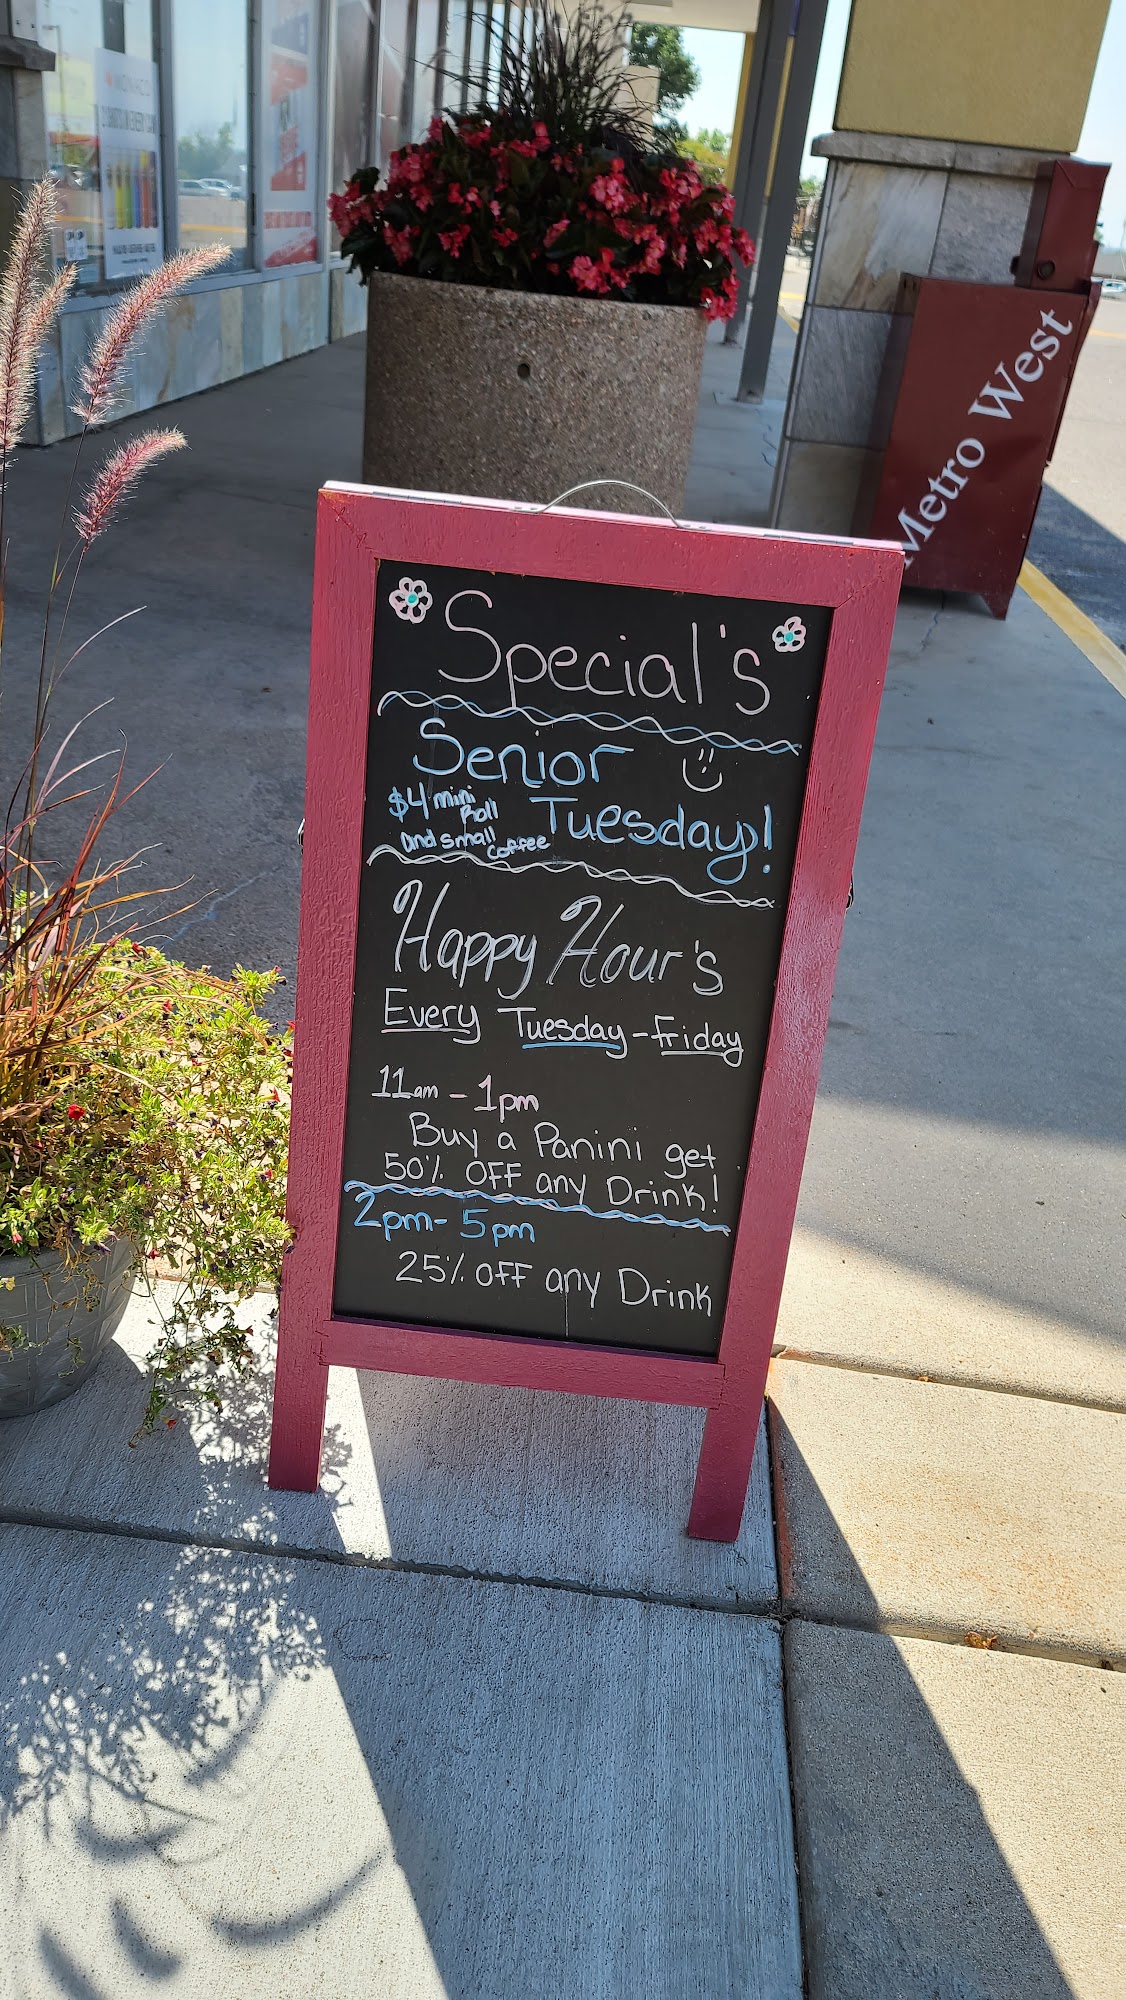 Special's
Senior
Tuesday!
$4 mini
Roll
and small
coffee
Happy Hour's
Every Tuesday - Friday
11am - 1pm
Buy a Panini get
50% OFF any Drink!
2pm - 5pm
25% OFF any Drink
Metro West